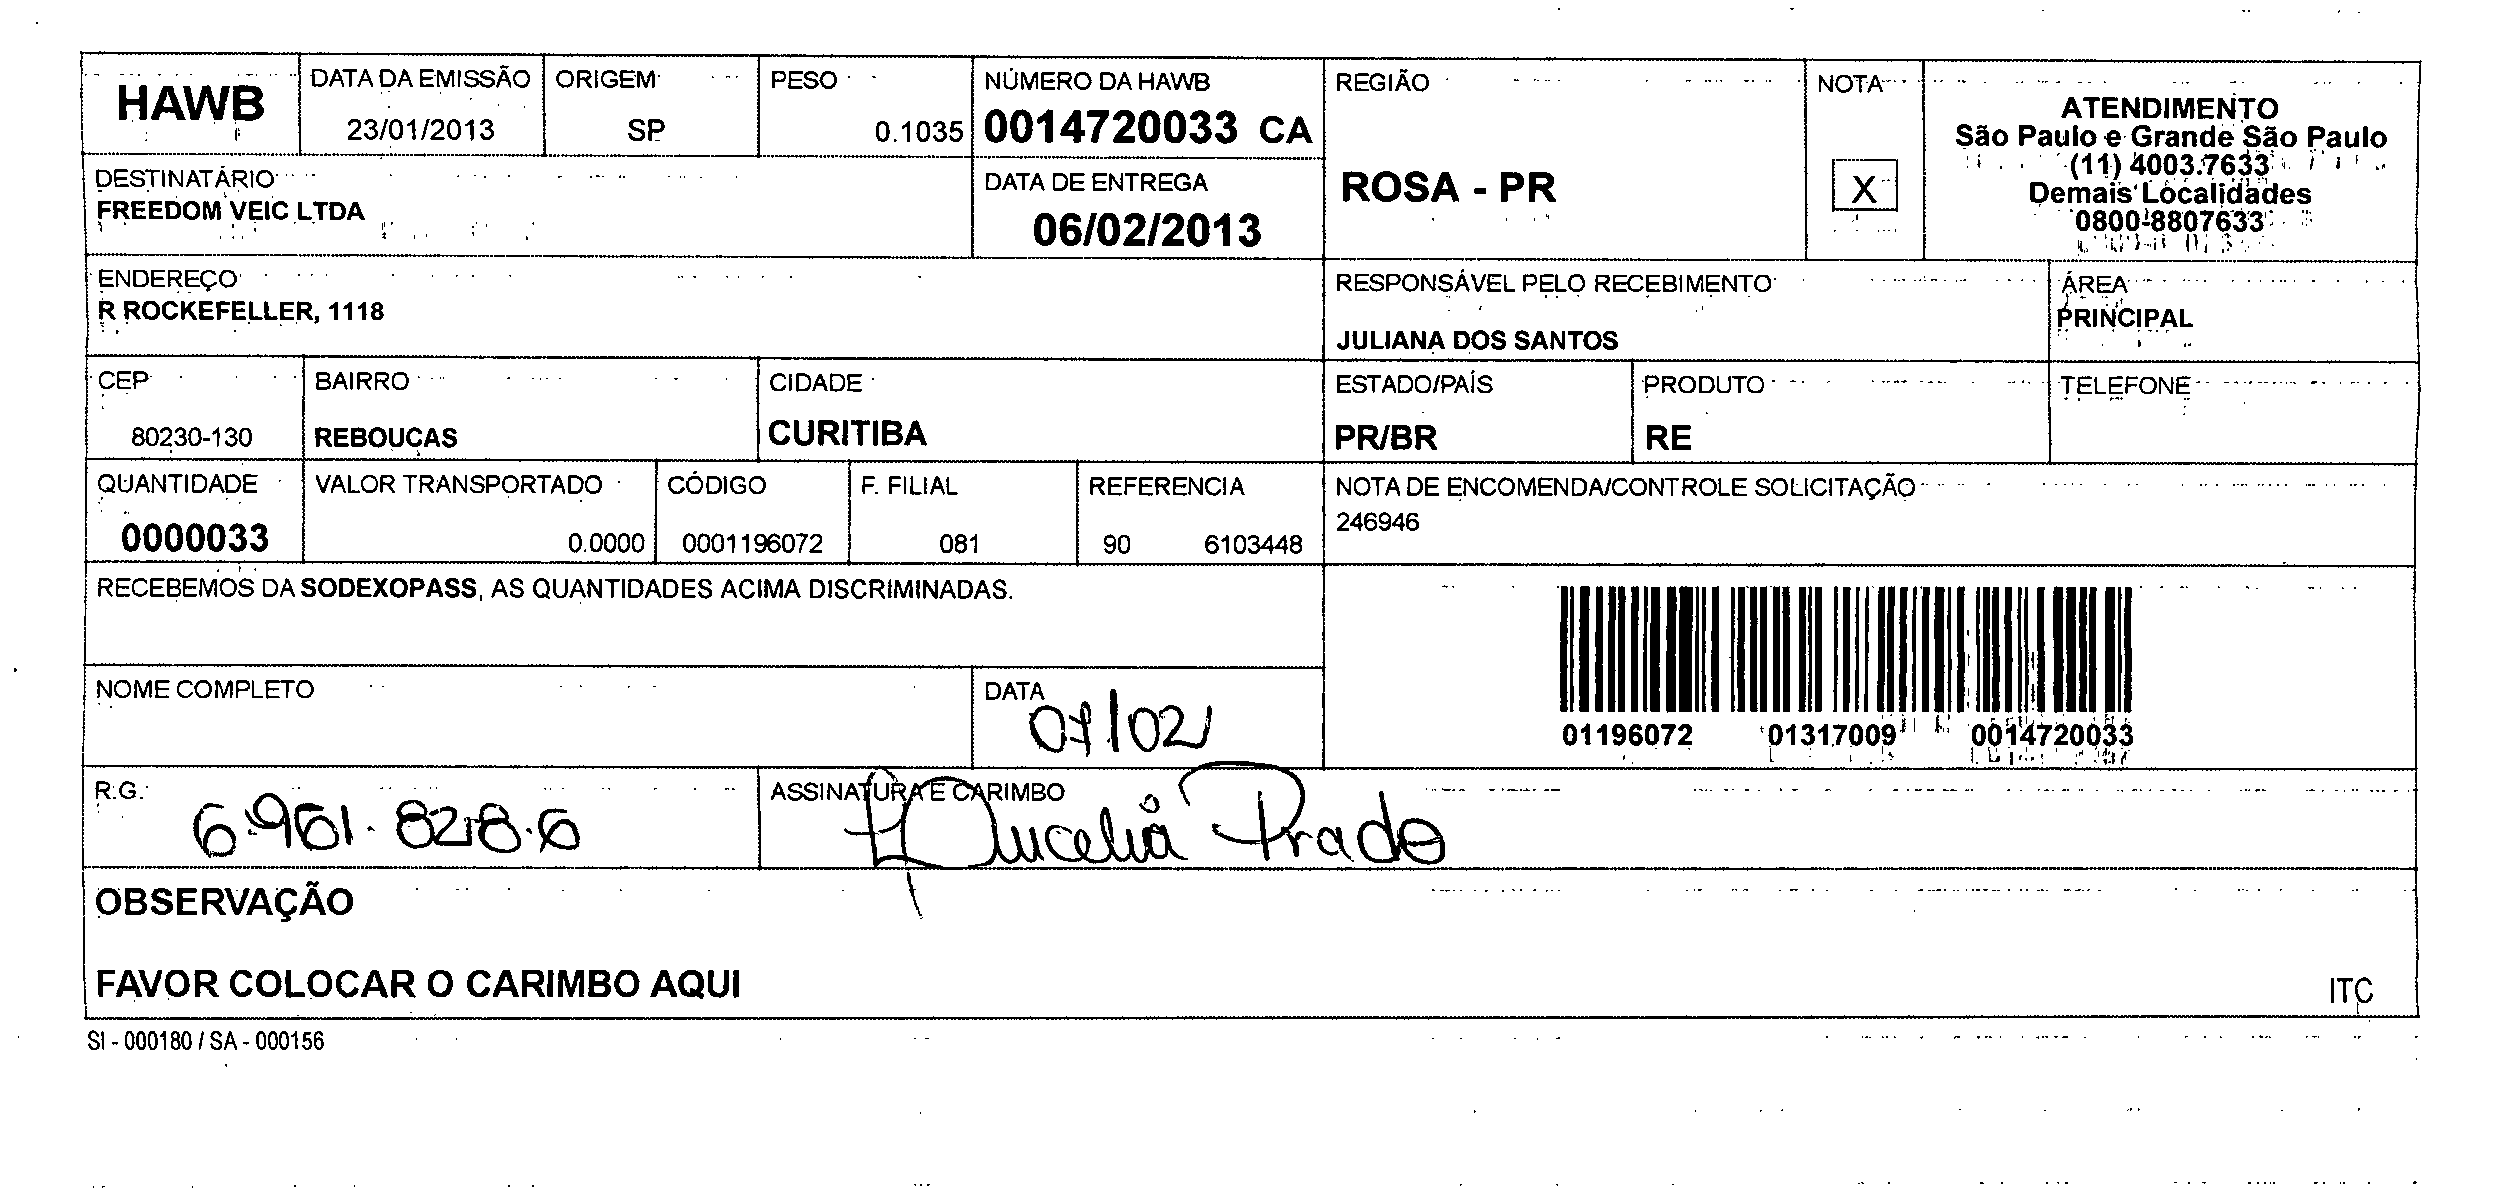 HAWB
DATA DA EMISSÃO
23/01/2013
ORIGEM
SP
PESO
0.1035
NÚMERO DA HAWB
0014720033 CA
REGIÃO
ROSA - PR
NOTA
X
ATENDIMENTO
São Paulo e Grande São Paulo
(11) 4003.7633
Demais Localidades
0800-8807633
DESTINATÁRIO
FREEDOM VEIC LTDA
DATA DE ENTREGA
06/02/2013
ENDEREÇO
R ROCKEFELLER, 1118
RESPONSÁVEL PELO RECEBIMENTO
JULIANA DOS SANTOS
ÁREA
PRINCIPAL
CEP
80230-130
BAIRRO
REBOUCAS
CIDADE
CURITIBA
ESTADO/PAÍS
PR/BR
PRODUTO
RE
TELEFONE
QUANTIDADE
0000033
VALOR TRANSPORTADO
0.0000
CÓDIGO
0001196072
F. FILIAL
081
REFERENCIA
90 6103448
NOTA DE ENCOMENDA/CONTROLE SOLICITAÇÃO
246946
RECEBEMOS DA SODEXOPASS, AS QUANTIDADES ACIMA DISCRIMINADAS.
01196072 01317009 0014720033
NOME COMPLETO
DATA
07/02/
R.G.
6.961.828.6
ASSINATURA E CARIMBO
Lucelia Prado
OBSERVAÇÃO
FAVOR COLOCAR O CARIMBO AQUI
ITC
SI - 000180 / SA - 000156